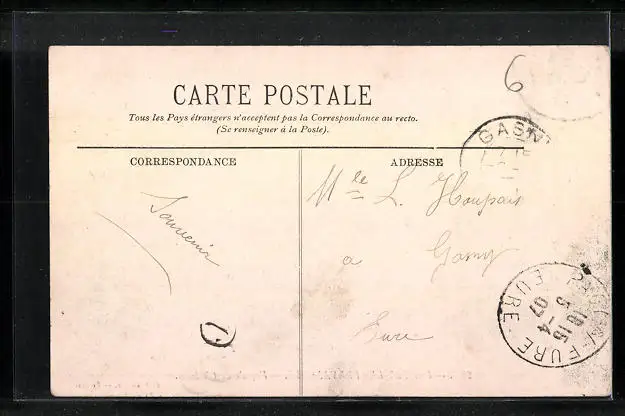 CARTE POSTALE
Tous les Pays étrangers n'acceptent pas la Correspondance au recto.
(Se renseigner à la Poste).
6
GASN
CORRESPONDANCE
ADRESSE
Souvenir
Mlle L. Houpais
a Gasny
Eure
EURE
18 15
5 - 4
07
EURE